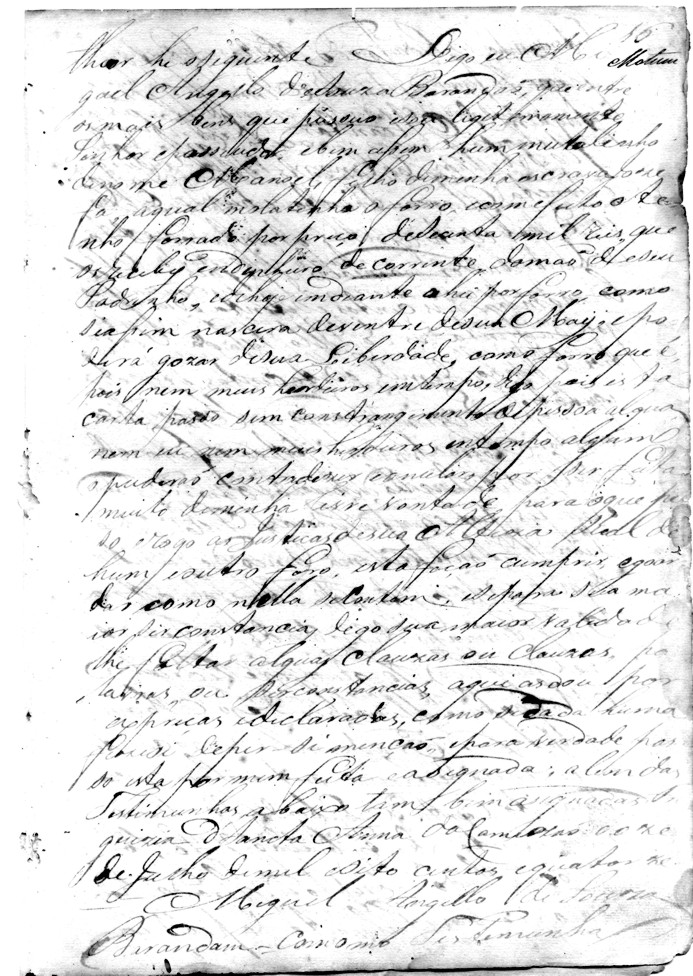 16
theor he o seguinte Digo eu Mi
guel Angello de Souza Barandas, que entre
os mais bens que pessuo
senhor e possuidor, e bem a hum mulatinho
de nome Manoel, filho de minha escrava
fa aqual molatinho o forro, como de feito o te
nho forrado por preço de secenta mil reis, que
os recebÿ em dinheiro de corrente da mão de seu
Padrinho, e de hoje em diante o hei por forro, como
se asim nascera do ventre de sua Maÿ, e po
derá gozar de sua Liberdade, como forro que é,
pois nem meus herdeiros em tempo, digo pois esta
carta pasço sem constrangimento de pessoa algua
nem eu, nem meus herdeiros em tempo algum
o puderá contradezer por ser feita
muito de minha livre vontade, para o que pe
ço e rogo as Justicas de sua Alteza Real de
hum e outro foro, esta façaõ cumprir, e goar
dar como nella se contem, e se para sua ma
ior sirconstancia, digo sua maior validade
lhe faltar alguã clauza ou clauzas, pa
lavras, ou sirconstancias, aqui as dou por
expreças e declaradas, como se de cada huma
fizese menção, e para verdade pas
so esta por mim feita e asignada, alem das
Testimunhas abaixo tambem asignadas
guizia de Sancta Anna do aoze
de Julho de mil e oito centos e quatorze
Miguel Angello de Souza
Barandas Como Testimunha